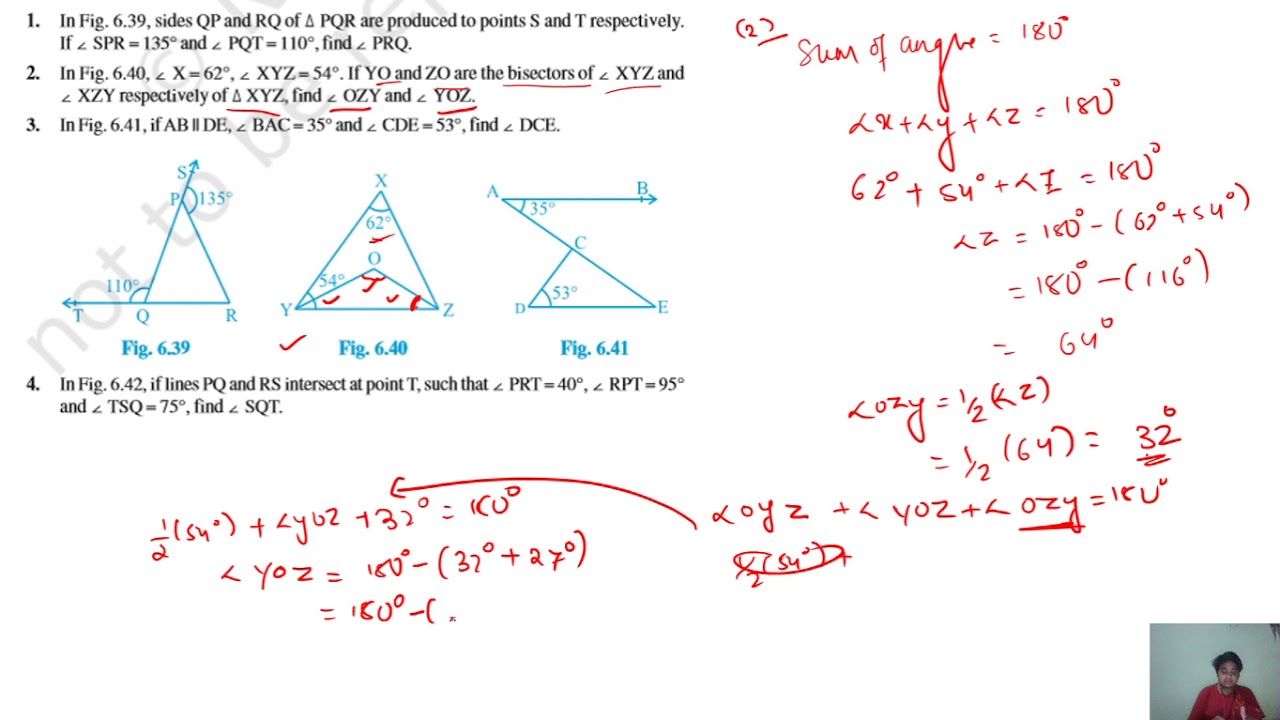 1. In Fig. 6.39, sides QP and RQ of Δ PQR are produced to points S and T respectively.
If ∠ SPR = 135° and ∠ PQT = 110°, find ∠ PRQ.
2. In Fig. 6.40, ∠ X = 62°, ∠ XYZ = 54°. If YO and ZO are the bisectors of ∠ XYZ and
∠ XZY respectively of Δ XYZ, find ∠ OZY and ∠ YOZ.
3. In Fig. 6.41, if AB || DE, ∠ BAC = 35° and ∠ CDE = 53°, find ∠ DCE.
S
P 135°
110°
T Q R
Fig. 6.39
X
62°
O
54°
Y Z
Fig. 6.40
A B
35°
C
53°
D E
Fig. 6.41
4. In Fig. 6.42, if lines PQ and RS intersect at point T, such that ∠ PRT = 40°, ∠ RPT = 95°
and ∠ TSQ = 75°, find ∠ SQT.
not to be re
(2)
Sum of angle = 180°
∠x + ∠y + ∠z = 180°
62° + 54° + ∠Z = 180°
∠z = 180° - (62° + 54°)
= 180° - (116°)
= 64°
∠ozy = 1/2 (∠z)
= 1/2 (64) = 32°
∠oyz + ∠yoz + ∠ozy = 180°
1/2 (54°) +
1/2 (54°) + ∠yoz + 32° = 180°
∠yoz = 180° - (32° + 27°)
= 180° - (